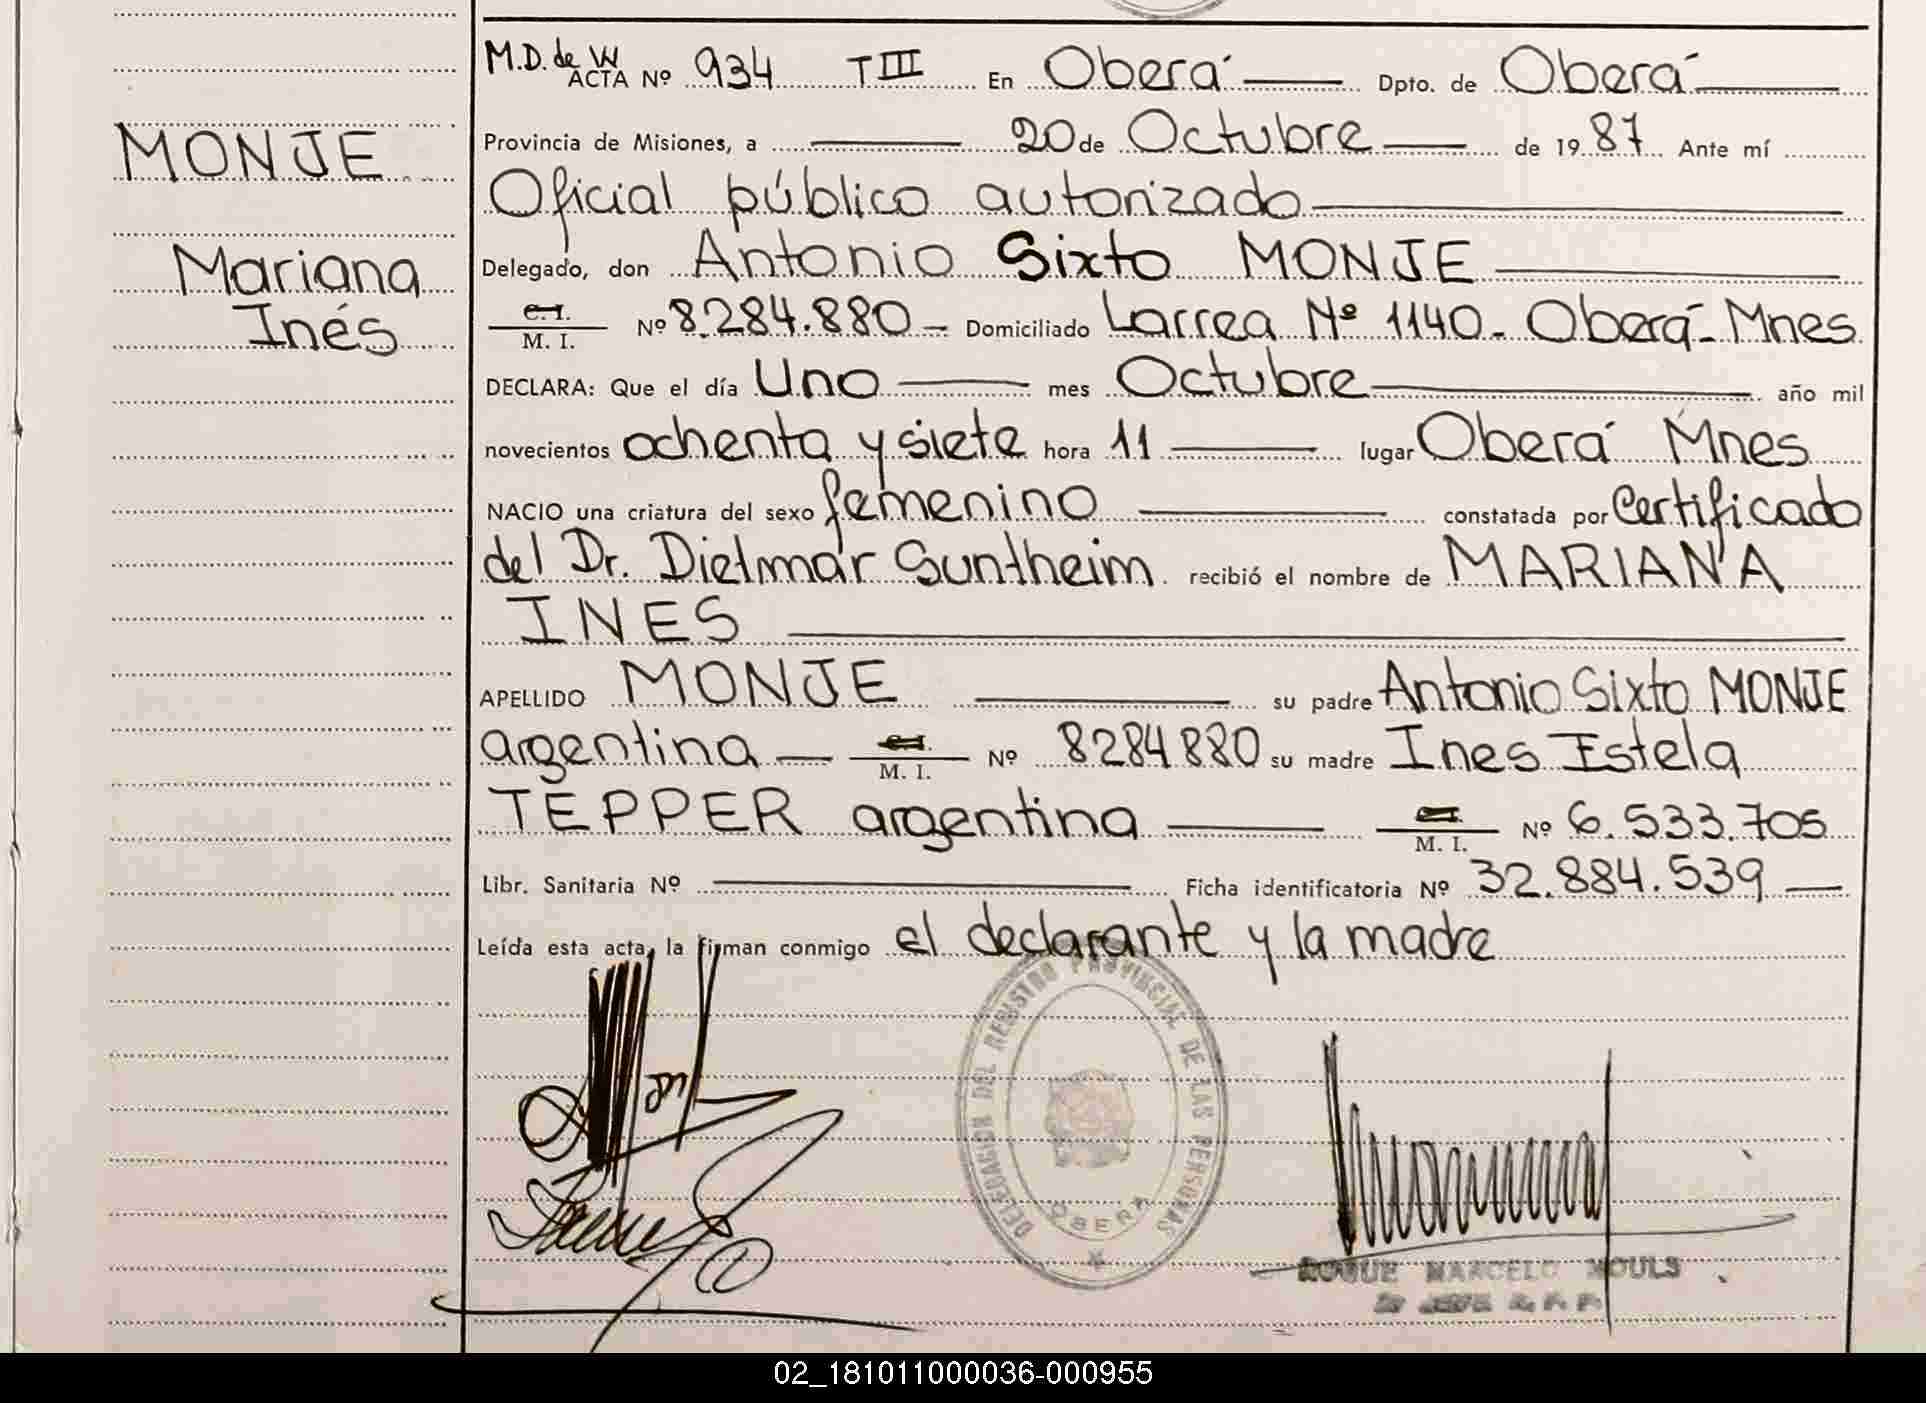 MONJE
Mariana
Inés
M.D. de W
ACTA Nº 934 TIII En Oberá Dpto. de Oberá
Provincia de Misiones, a 20 de Octubre de 1987 Ante mí
Oficial público autorizado
Delegado, don Antonio Sixto MONJE
C.I.
M. I. Nº 8.284.880 - Domiciliado Larrea Nº 1140 - Oberá - Mnes
DECLARA: Que el día Uno mes Octubre año mil
novecientos ochenta y siete hora 11 lugar Oberá Mnes
NACIO una criatura del sexo femenino constatada por Certificado
del Dr. Dietmar Suntheim recibió el nombre de MARIANA
INES
APELLIDO MONJE su padre Antonio Sixto MONJE
argentina M. I. Nº 8284880 su madre Ines Estela
TEPPER argentina M. I. Nº 6.533.705
Libr. Sanitaria Nº Ficha identificatoria Nº 32.884.539
Leída esta acta, la firman conmigo el declarante y la madre
DELEGACION DEL REGISTRO PROVINCIAL DE LAS PERSONAS
OBERA
ROQUE MARCELO MOULS
02_181011000036-000955